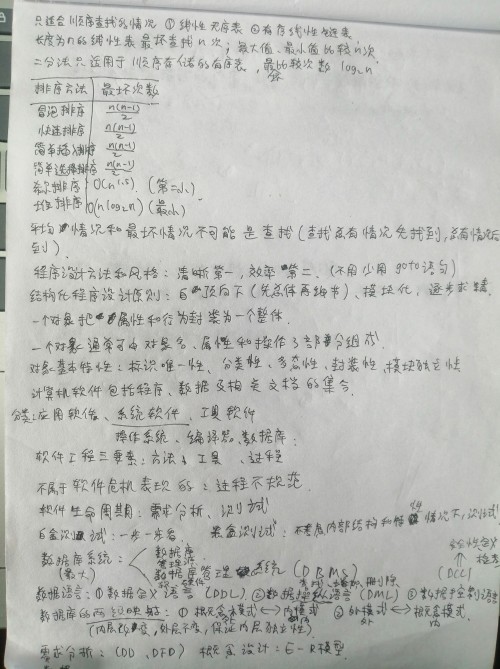 只适合顺序查找的情况 ①线性无序表 ②有序线性链表
长度为n的线性表最坏查找n次; 最大值、最小值比较n次
二分法只适用于顺序存储的有序表, 最坏比较次数 log₂n
排序方法 最坏次数
冒泡排序 n(n-1)/2
快速排序 n(n-1)/2
简单插入排序 n(n-1)/2
简单选择排序 n(n-1)/2
希尔排序 O(n^1.5) (第二小)
堆排序 O(nlog₂n) (最小)
平均情况和最坏情况不可能是查找(查找总有情况先找到, 总有情况后
到).
程序设计方法和风格: 清晰第一, 效率第二. (不用少用goto语句)
结构化程序设计原则: 自顶向下(先总体再细节)、模块化, 逐步求精
一个对象把属性和行为封装为一个整体.
一个对象通常可由对象名、属性和操作3部分组成
对象基本特性: 标识唯一性、分类性、多态性、封装性、模块独立性
计算机软件包括程序、数据及相关文档的集合
分类:应用软件、系统软件、工具软件
操作系统、编译器、数据库.
软件工程三要素: 方法、工具、过程
不属于软件危机表现的: 过程不规范
软件生命周期: 需求分析、测试
白盒测试: 一步一步看. 黑盒测试: 不考虑内部结构和特性情况下, 测试
数据库系统:
(最大)
数据库
管理员
数据库管理系统 (DBMS)
软、硬件
完整性定义
↑ 检查
(DCL)
数据语言: ①数据定义语言 (DDL) ②数据操纵语言 (DML) ③数据控制语言
查询、增加、删除
数据库的两级映射: ①概念模式 ⟷ 内模式 ②外模式 ⟷ 概念模式.
(内层改变, 外层不变, 保证内层独立性)
需求分析: (DD、DFD) 概念设计: E-R模型